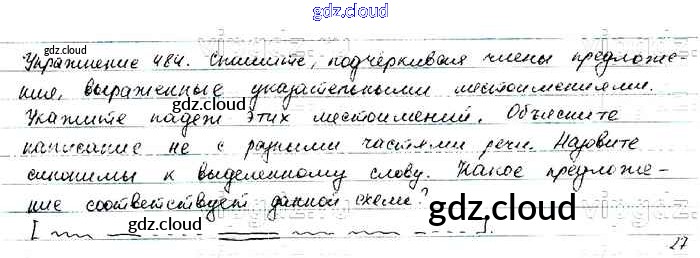 gdz.cloud
Упражнение 484. Спишите, подчёркивая члены предложе-
ния, выраженные указательными местоимениями.
gdz.cloud
Укажите падеж этих местоимений. Объясните
написание не с разными частями речи. Назовите
синонимы к выделенному слову. Какое предложе-
ние соответствует данной схеме?
gdz.cloud
gdz.cloud
[ ].
27